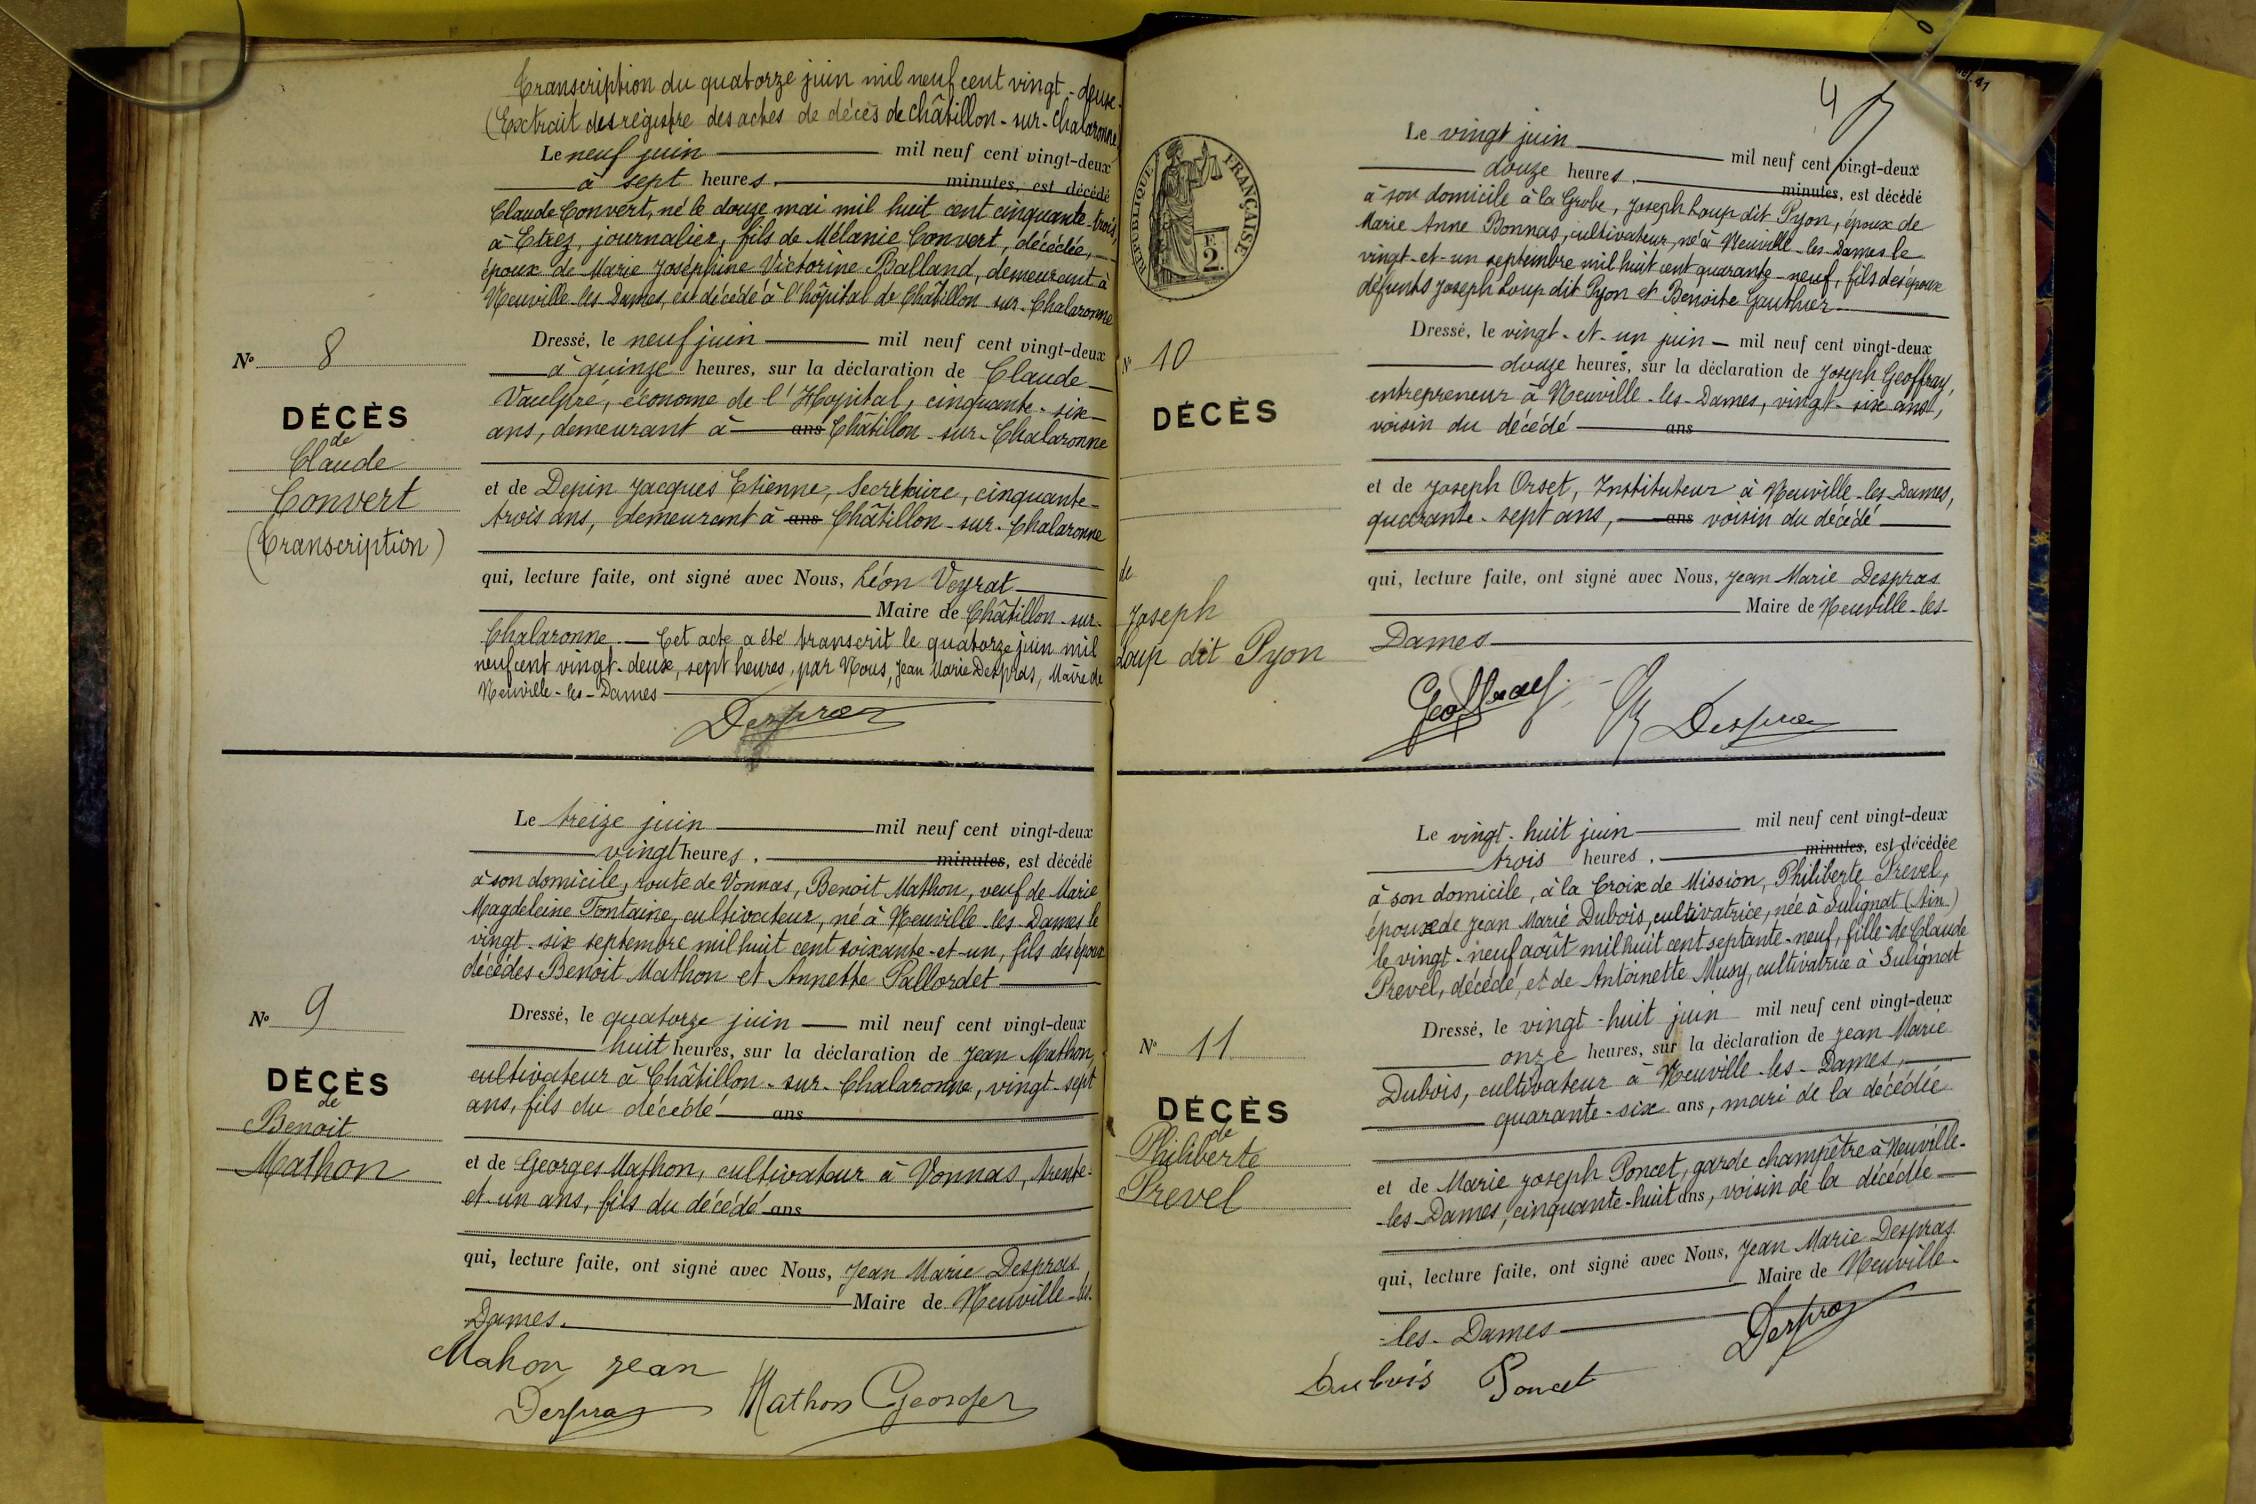 Transcription du quatorze juin mil neuf cent vingt-deux.
(Extrait des registre des actes de décès de Châtillon-sur-Chalaronne)
Le neuf juin mil neuf cent vingt-deux
à sept heures, minutes, est décédé
Claude Convert, né le douze mai mil huit cent cinquante-trois,
à Etrez, journalier, fils de Mélanie Convert, décédée,
époux de Marie Joséphine Victorine Balland, demeurant à
Neuville-les-Dames, est décédé à l'hôpital de Châtillon-sur-Chalaronne
Dressé, le neuf juin mil neuf cent vingt-deux
à quinze heures, sur la déclaration de Claude
Vaulpré, économe de l'Hopital, cinquante-six
ans, demeurant à ans Châtillon-sur-Chalaronne
et de Depin Jacques Etienne, Secrétaire, cinquante-
trois ans, demeurant à ans Châtillon-sur-Chalaronne
qui, lecture faite, ont signé avec Nous, Léon Veyrat
Maire de Châtillon-sur-
Chalaronne. Cet acte a été transcrit le quatorze juin mil
neuf cent vingt-deux, sept heures, par Nous, Jean Marie Despras, Maire de
Neuville-les-Dames
Despras
N° 8
DÉCÈS
de
Claude
Convert
(Transcription)
Le treize juin mil neuf cent vingt-deux
vingt heures, minutes, est décédé
à son domicile, route de Vonnas, Benoit Mathon, veuf de Marie
Magdeleine Fontaine, cultivateur, né à Neuville-les-Dames le
vingt-six septembre mil huit cent soixante-et-un, fils des époux
décédés Benoit Mathon et Annette Pallordet
Dressé, le quatorze juin mil neuf cent vingt-deux
huit heures, sur la déclaration de Jean Mathon,
cultivateur à Châtillon-sur-Chalaronne, vingt-sept
ans, fils du décédé ans
et de Georges Mathon, cultivateur à Vonnas, trente-
et-un ans, fils du décédé ans
qui, lecture faite, ont signé avec Nous, Jean Marie Despras
Maire de Neuville-les-
Dames.
Mahon Jean
Despras Mathon Georges
N° 9
DÉCÈS
de
Benoit
Mathon
4
RÉPUBLIQUE FRANÇAISE
2
Le vingt juin mil neuf cent vingt-deux
douze heures, minutes, est décédé
à son domicile à la Grobe, Joseph Loup dit Pyon, époux de
Marie Anne Bonnas, cultivateur, né à Neuville-les-Dames le
vingt-et-un septembre mil huit cent quarante-neuf, fils des époux
défunts Joseph Loup dit Pyon et Benoite Gauthier
Dressé, le vingt-et-un juin mil neuf cent vingt-deux
douze heures, sur la déclaration de Joseph Geoffray,
entrepreneur à Neuville-les-Dames, vingt-six ans,
voisin du décédé ans
et de Joseph Orset, Instituteur à Neuville-les-Dames,
quarante-sept ans, ans voisin du décédé
qui, lecture faite, ont signé avec Nous, Jean Marie Despras
Maire de Neuville-les-
Dames
Geoffray Despras
N° 10
DÉCÈS
de
Joseph
Loup dit Pyon
Le vingt-huit juin mil neuf cent vingt-deux
trois heures, minutes, est décédée
à son domicile, à la Croix de Mission, Philiberte Prevel,
épouse de Jean Marie Dubois, cultivatrice, née à Sulignat (Ain)
le vingt-neuf août mil huit cent septante-neuf, fille de Claude
Prevel, décédé, et de Antoinette Musy, cultivatrice à Sulignat
Dressé, le vingt-huit juin mil neuf cent vingt-deux
onze heures, sur la déclaration de Jean Marie
Dubois, cultivateur à Neuville-les-Dames,
quarante-six ans, mari de la décédée
et de Marie Joseph Poncet, garde champêtre à Neuville-
-les-Dames, cinquante-huit ans, voisin de la décédée
qui, lecture faite, ont signé avec Nous, Jean Marie Despras
Maire de Neuville-
-les-Dames
Despras
Dubois Poncet
N° 11
DÉCÈS
de
Philiberte
Prevel